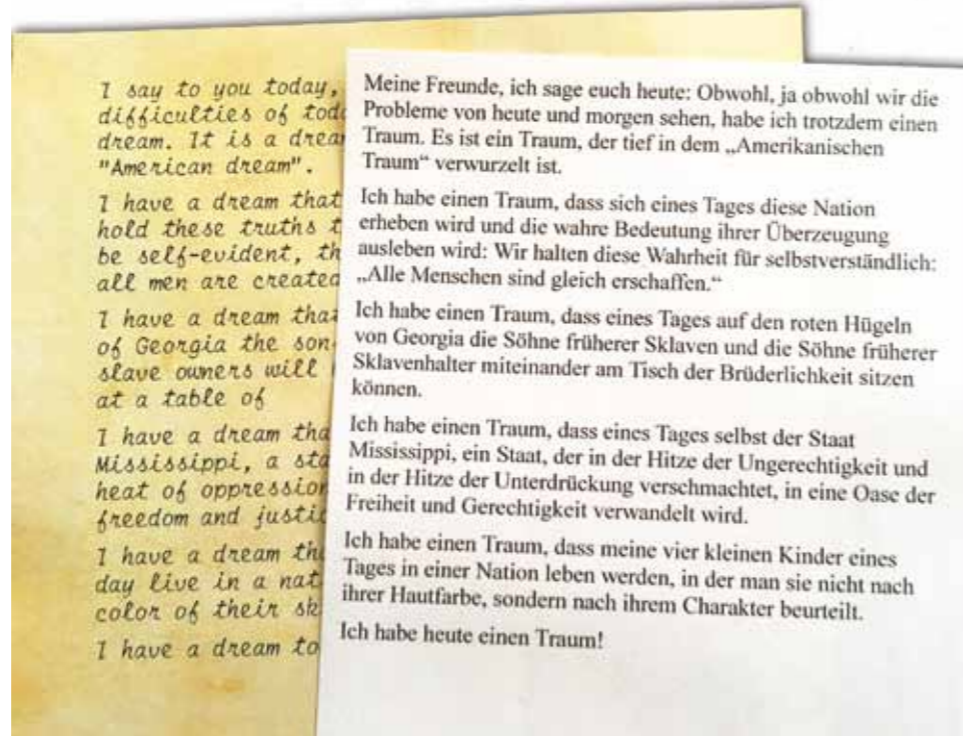 I say to you today,
difficulties of
dream. It is a
"American dream".
I have a dream that
hold these truths
be self-evident,
all men are created
I have a dream that
of Georgia the
slave owners will
at a table of
I have a dream
Mississippi, a
heat of oppression
freedom and
I have a dream
day live in a
color of their
I have a dream
Meine Freunde, ich sage euch heute: Obwohl, ja obwohl wir die
Probleme von heute und morgen sehen, habe ich trotzdem einen
Traum. Es ist ein Traum, der tief in dem „Amerikanischen
Traum“ verwurzelt ist.
Ich habe einen Traum, dass sich eines Tages diese Nation
erheben wird und die wahre Bedeutung ihrer Überzeugung
ausleben wird: Wir halten diese Wahrheit für selbstverständlich:
„Alle Menschen sind gleich erschaffen.“
Ich habe einen Traum, dass eines Tages auf den roten Hügeln
von Georgia die Söhne früherer Sklaven und die Söhne früherer
Sklavenhalter miteinander am Tisch der Brüderlichkeit sitzen
können.
Ich habe einen Traum, dass eines Tages selbst der Staat
Mississippi, ein Staat, der in der Hitze der Ungerechtigkeit und
in der Hitze der Unterdrückung verschmachtet, in eine Oase der
Freiheit und Gerechtigkeit verwandelt wird.
Ich habe einen Traum, dass meine vier kleinen Kinder eines
Tages in einer Nation leben werden, in der man sie nicht nach
ihrer Hautfarbe, sondern nach ihrem Charakter beurteilt.
Ich habe heute einen Traum!